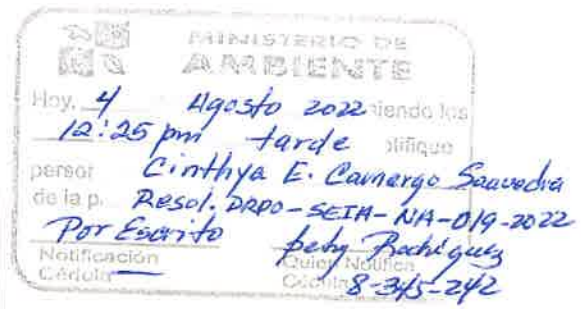 MINISTERIO DE
AMBIENTE
Hoy, 4 Agosto 2022 siendo las
12:25 pm tarde notifique
person
de la p. Cinthya E. Camargo Saavedra
Resol. DRPO-SEIA-NA-019-2022
Por Escrito bety Rodriguez
Notificación Quien Notifica
Cédula Cédula 8-345-242